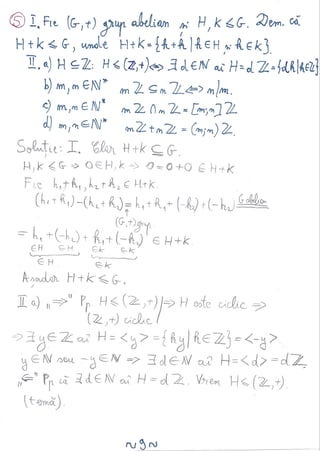 ⑤ I. Fie (G,+) grup abelian și H, K ≤ G. Dem. că
H+K ≤ G, unde H+K = {h+k | h∈H și k∈K}.
II. a) H ⊆ ℤ: H ≤ (ℤ,+) ⇔ ∃ d∈ℕ aî H = dℤ = {dk | k∈ℤ}
b) m, n ∈ ℕ* mℤ ⊆ nℤ ⇔ n|m.
c) m, n ∈ ℕ* mℤ ∩ nℤ = [m;n]ℤ
d) m, n ∈ ℕ* mℤ + nℤ = (m;n)ℤ.
Soluție: I. Clar H+K ⊆ G.
H, K ≤ G ⇒ 0 ∈ H, K ⇒ 0 = 0+0 ∈ H+K
Fie h₁+k₁, h₂+k₂ ∈ H+K.
(h₁+k₁)-(h₂+k₂) = h₁+k₁+(-k₂)+(-h₂) G abelian
(G,+) grup
= h₁+(-h₂) + k₁+(-k₂) ∈ H+K
∈H ∈H ∈K ∈K
∈H ∈K
Așadar H+K ≤ G.
II a) „⇒" Pp. H ≤ (ℤ,+) | ⇒ H este ciclic ⇒
(ℤ,+) ciclic
⇒ ∃ y∈ℤ aî H = <y> = {ky | k∈ℤ} = <-y>
y∈ℕ sau -y∈ℕ ⇒ ∃ d∈ℕ aî H = <d> = dℤ.
„⇐" Pp. că ∃ d∈ℕ aî H = dℤ. Vrem H ≤ (ℤ,+)
(temă).
~9~